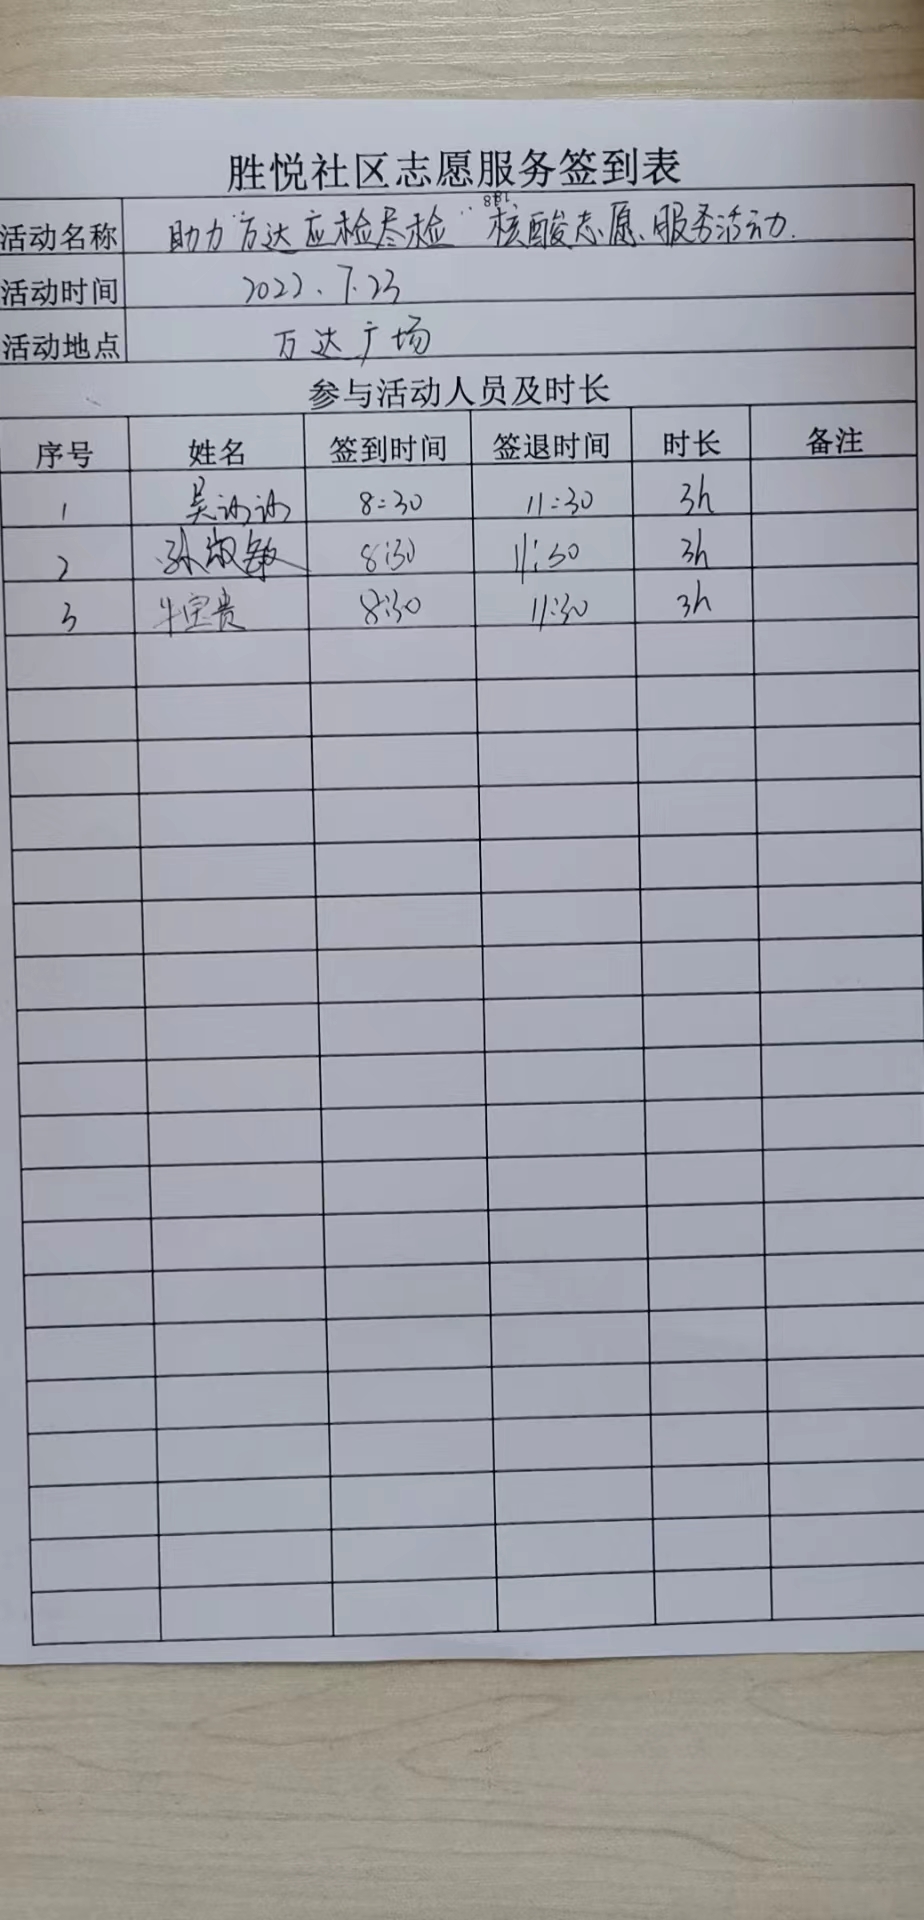 胜悦社区志愿服务签到表
活动名称 助力"万达应检尽检"核酸志愿服务活动.
活动时间 2022.7.23
活动地点 万达广场
参与活动人员及时长
序号 姓名 签到时间 签退时间 时长 备注
1 吴 8:30 11:30 3h
2 孙淑敏 8:30 11:30 3h
3 牛宝贵 8:30 11:30 3h